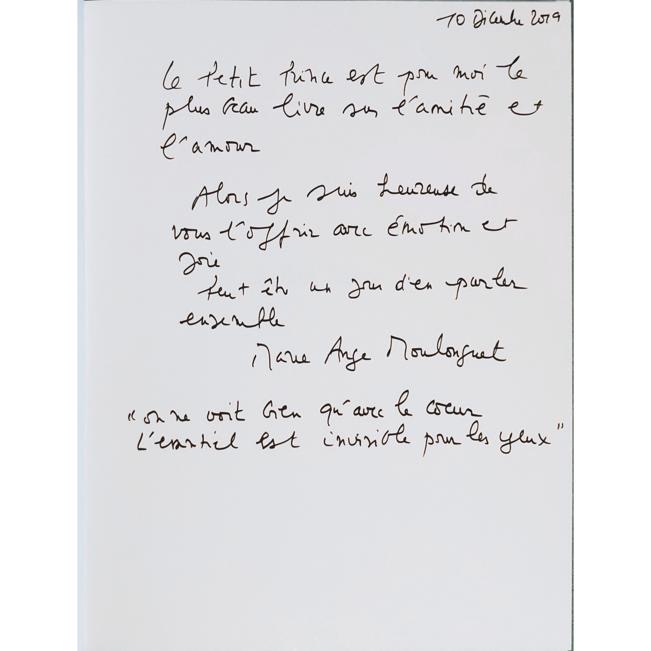 10 Décembre 2019
Le Petit Prince est pour moi le
plus beau livre sur l'amitié et
l'amour
Alors je suis heureuse de
vous l'offrir avec émotion et
joie
Peut être un jour d'en parler
ensemble
Marie Ange Moulonguet
"on ne voit bien qu'avec le coeur
L'essentiel est invisible pour les yeux"